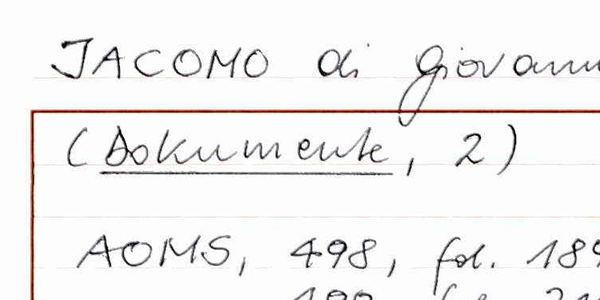 JACOMO di Giovann
(Dokumente, 2)
AOMS, 498, fol. 189